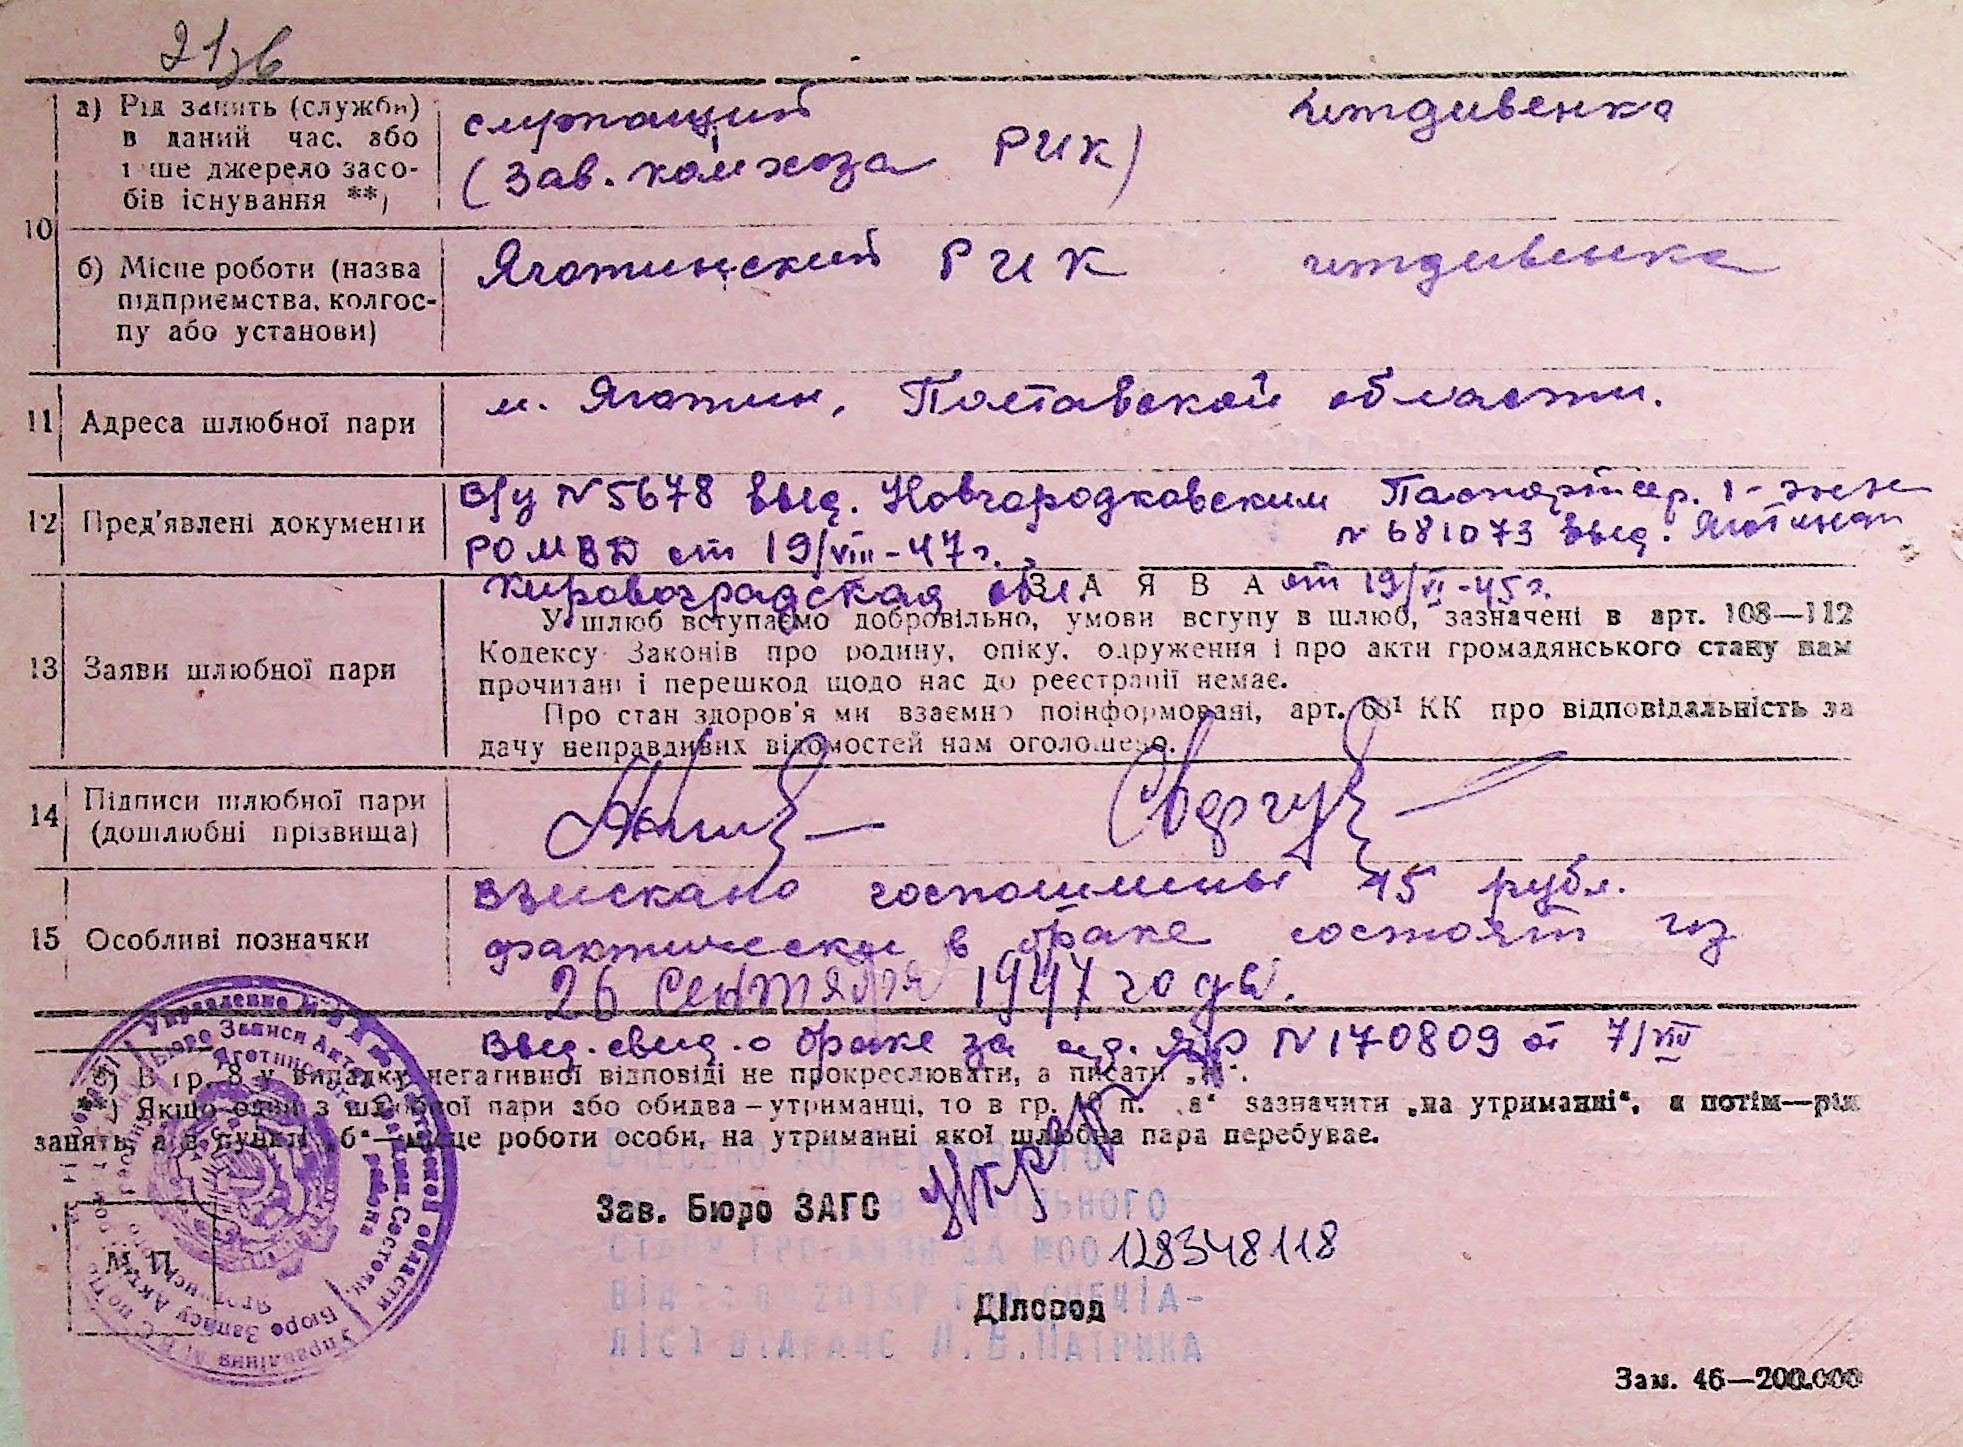 21зв
10
а) Рід занять (служби) в даний час. або інше джерело засобів існування **)
служащий
(Зав. комхоза РИК)
иждивенка
б) Місце роботи (назва підприємства, колгоспу або установи)
Яготинский РИК
иждивенка
11 Адреса шлюбної пари
м. Яготин, Полтавской области.
12 Пред'явлені документи
В/у N 5678 выд. Новгородковским
РОМВД от 19/VIII-47 г.
Кировоградская обл.
Паспорт сер.
N 681073 выд.
от 19/VI-45 г.
ЗАЯВА
13 Заяви шлюбної пари
У шлюб вступаємо добровільно, умови вступу в шлюб, зазначені в арт. 108—112
Кодексу Законів про родину, опіку, одруження і про акти громадянського стану нам
прочитані і перешкод щодо нас до реєстрації немає.
Про стан здоров'я ми взаємно поінформовані, арт. 68¹ КК про відповідальність за
дачу неправдивих відомостей нам оголошено.
14 Підписи шлюбної пари
(дошлюбні прізвища)
15 Особливі позначки
взыскано госпошлины 15 рубл.
фактически в браке состоят из
26 сентября 1947 года.
Выд. свид. о браке за N 170809 от 7/VIII
*) В гр. 8 у випадку негативної відповіді не прокреслювати, а писати „ні“.
**) Якщо один з шлюбної пари або обидва – утриманці, то в гр. 10 п. „а“ зазначити „на утриманні“, а потім—рід
занять, а в пункті „б“—місце роботи особи, на утриманні якої шлюбна пара перебуває.
Зав. Бюро ЗАГС
128348118
М. П.
Діловод
Зам. 46—200.000